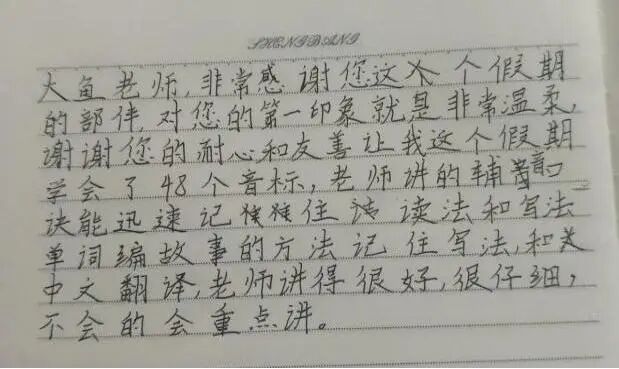 SHENGBANG
大鱼老师,非常感谢您这个假期
的部伴,对您的第一印象就是非常温柔,
谢谢您的耐心和友善让我这个假期
学会了48个音标,老师讲的辅音口
诀能迅速记住读法和写法
单词编故事的方法记住写法,和
中文翻译,老师讲得很好,很仔细,
不会的会重点讲。